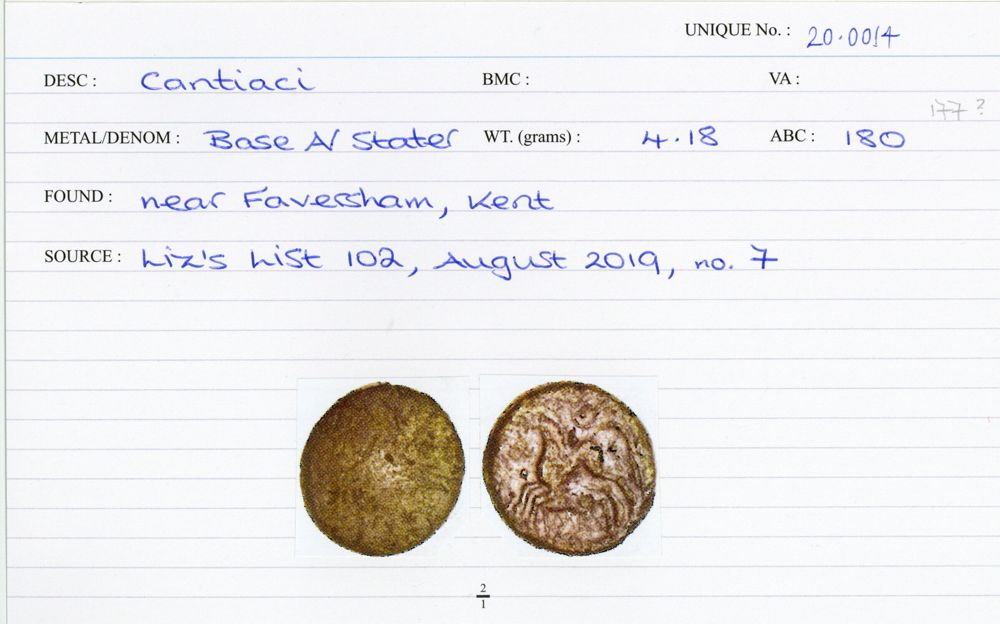 UNIQUE No. : 20.0014
DESC : Cantiaci BMC : VA :
177?
METAL/DENOM : Base AV Stater WT. (grams) : 4.18 ABC : 180
FOUND : near Faversham, Kent
SOURCE : Liz's List 102, August 2019, no. 7
2
1